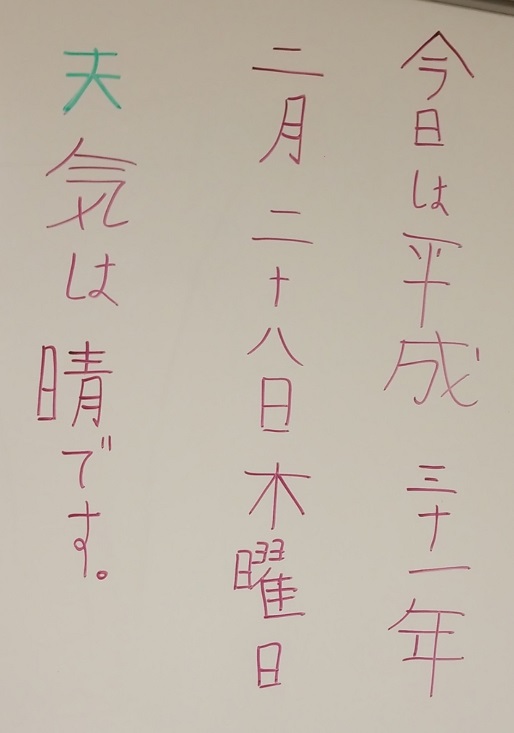 今日は平成三十一年
二月二十八日木曜日
天気は晴です。